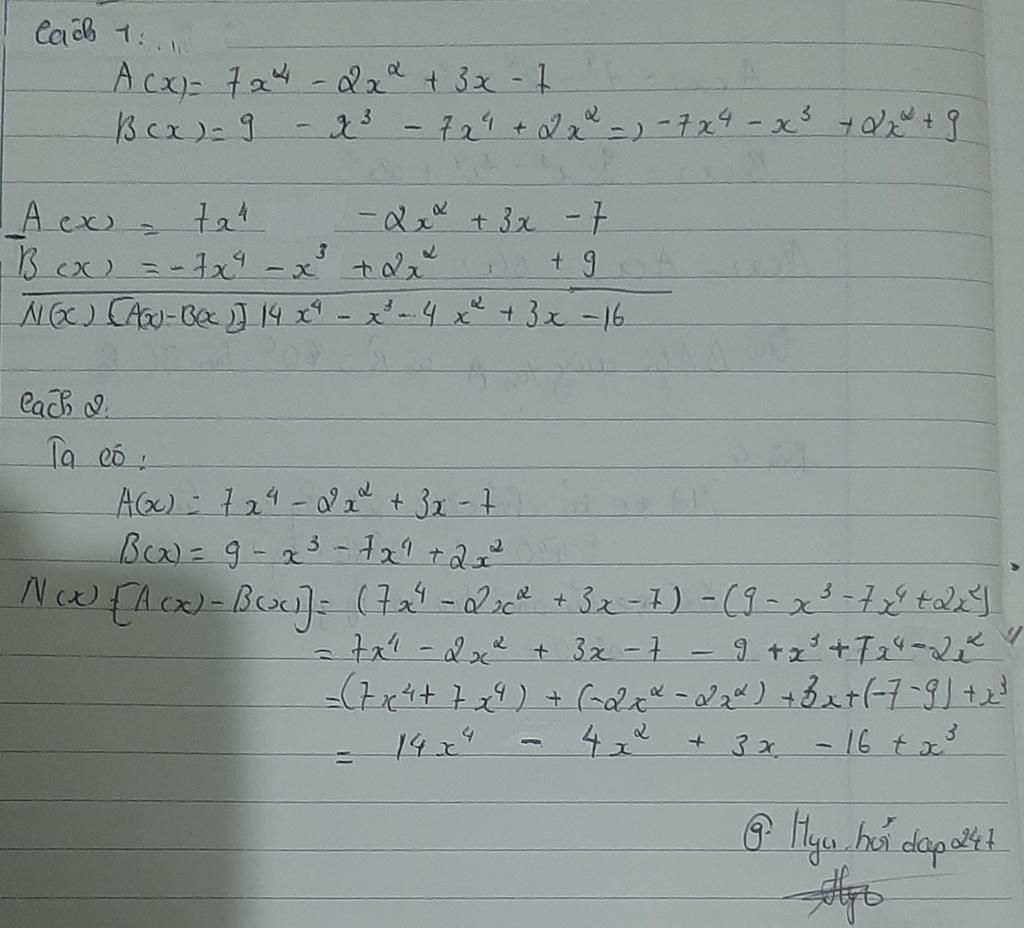 Cách 1: ...
A(x) = 7x⁴ - 2x² + 3x - 7
B(x) = 9 - x³ - 7x⁴ + 2x² => -7x⁴ - x³ + 2x² + 9
A(x) = 7x⁴ - 2x² + 3x - 7
-
B(x) = -7x⁴ - x³ + 2x² + 9
N(x) [A(x) - B(x)] 14x⁴ - x³ - 4x² + 3x - 16
Cách 2:
Ta có:
A(x) = 7x⁴ - 2x² + 3x - 7
B(x) = 9 - x³ - 7x⁴ + 2x²
N(x) [A(x) - B(x)] = (7x⁴ - 2x² + 3x - 7) - (9 - x³ - 7x⁴ + 2x²)
= 7x⁴ - 2x² + 3x - 7 - 9 + x³ + 7x⁴ - 2x²
= (7x⁴ + 7x⁴) + (-2x² - 2x²) + 3x + (-7 - 9) + x³
= 14x⁴ - 4x² + 3x - 16 + x³
hỏi dap 247